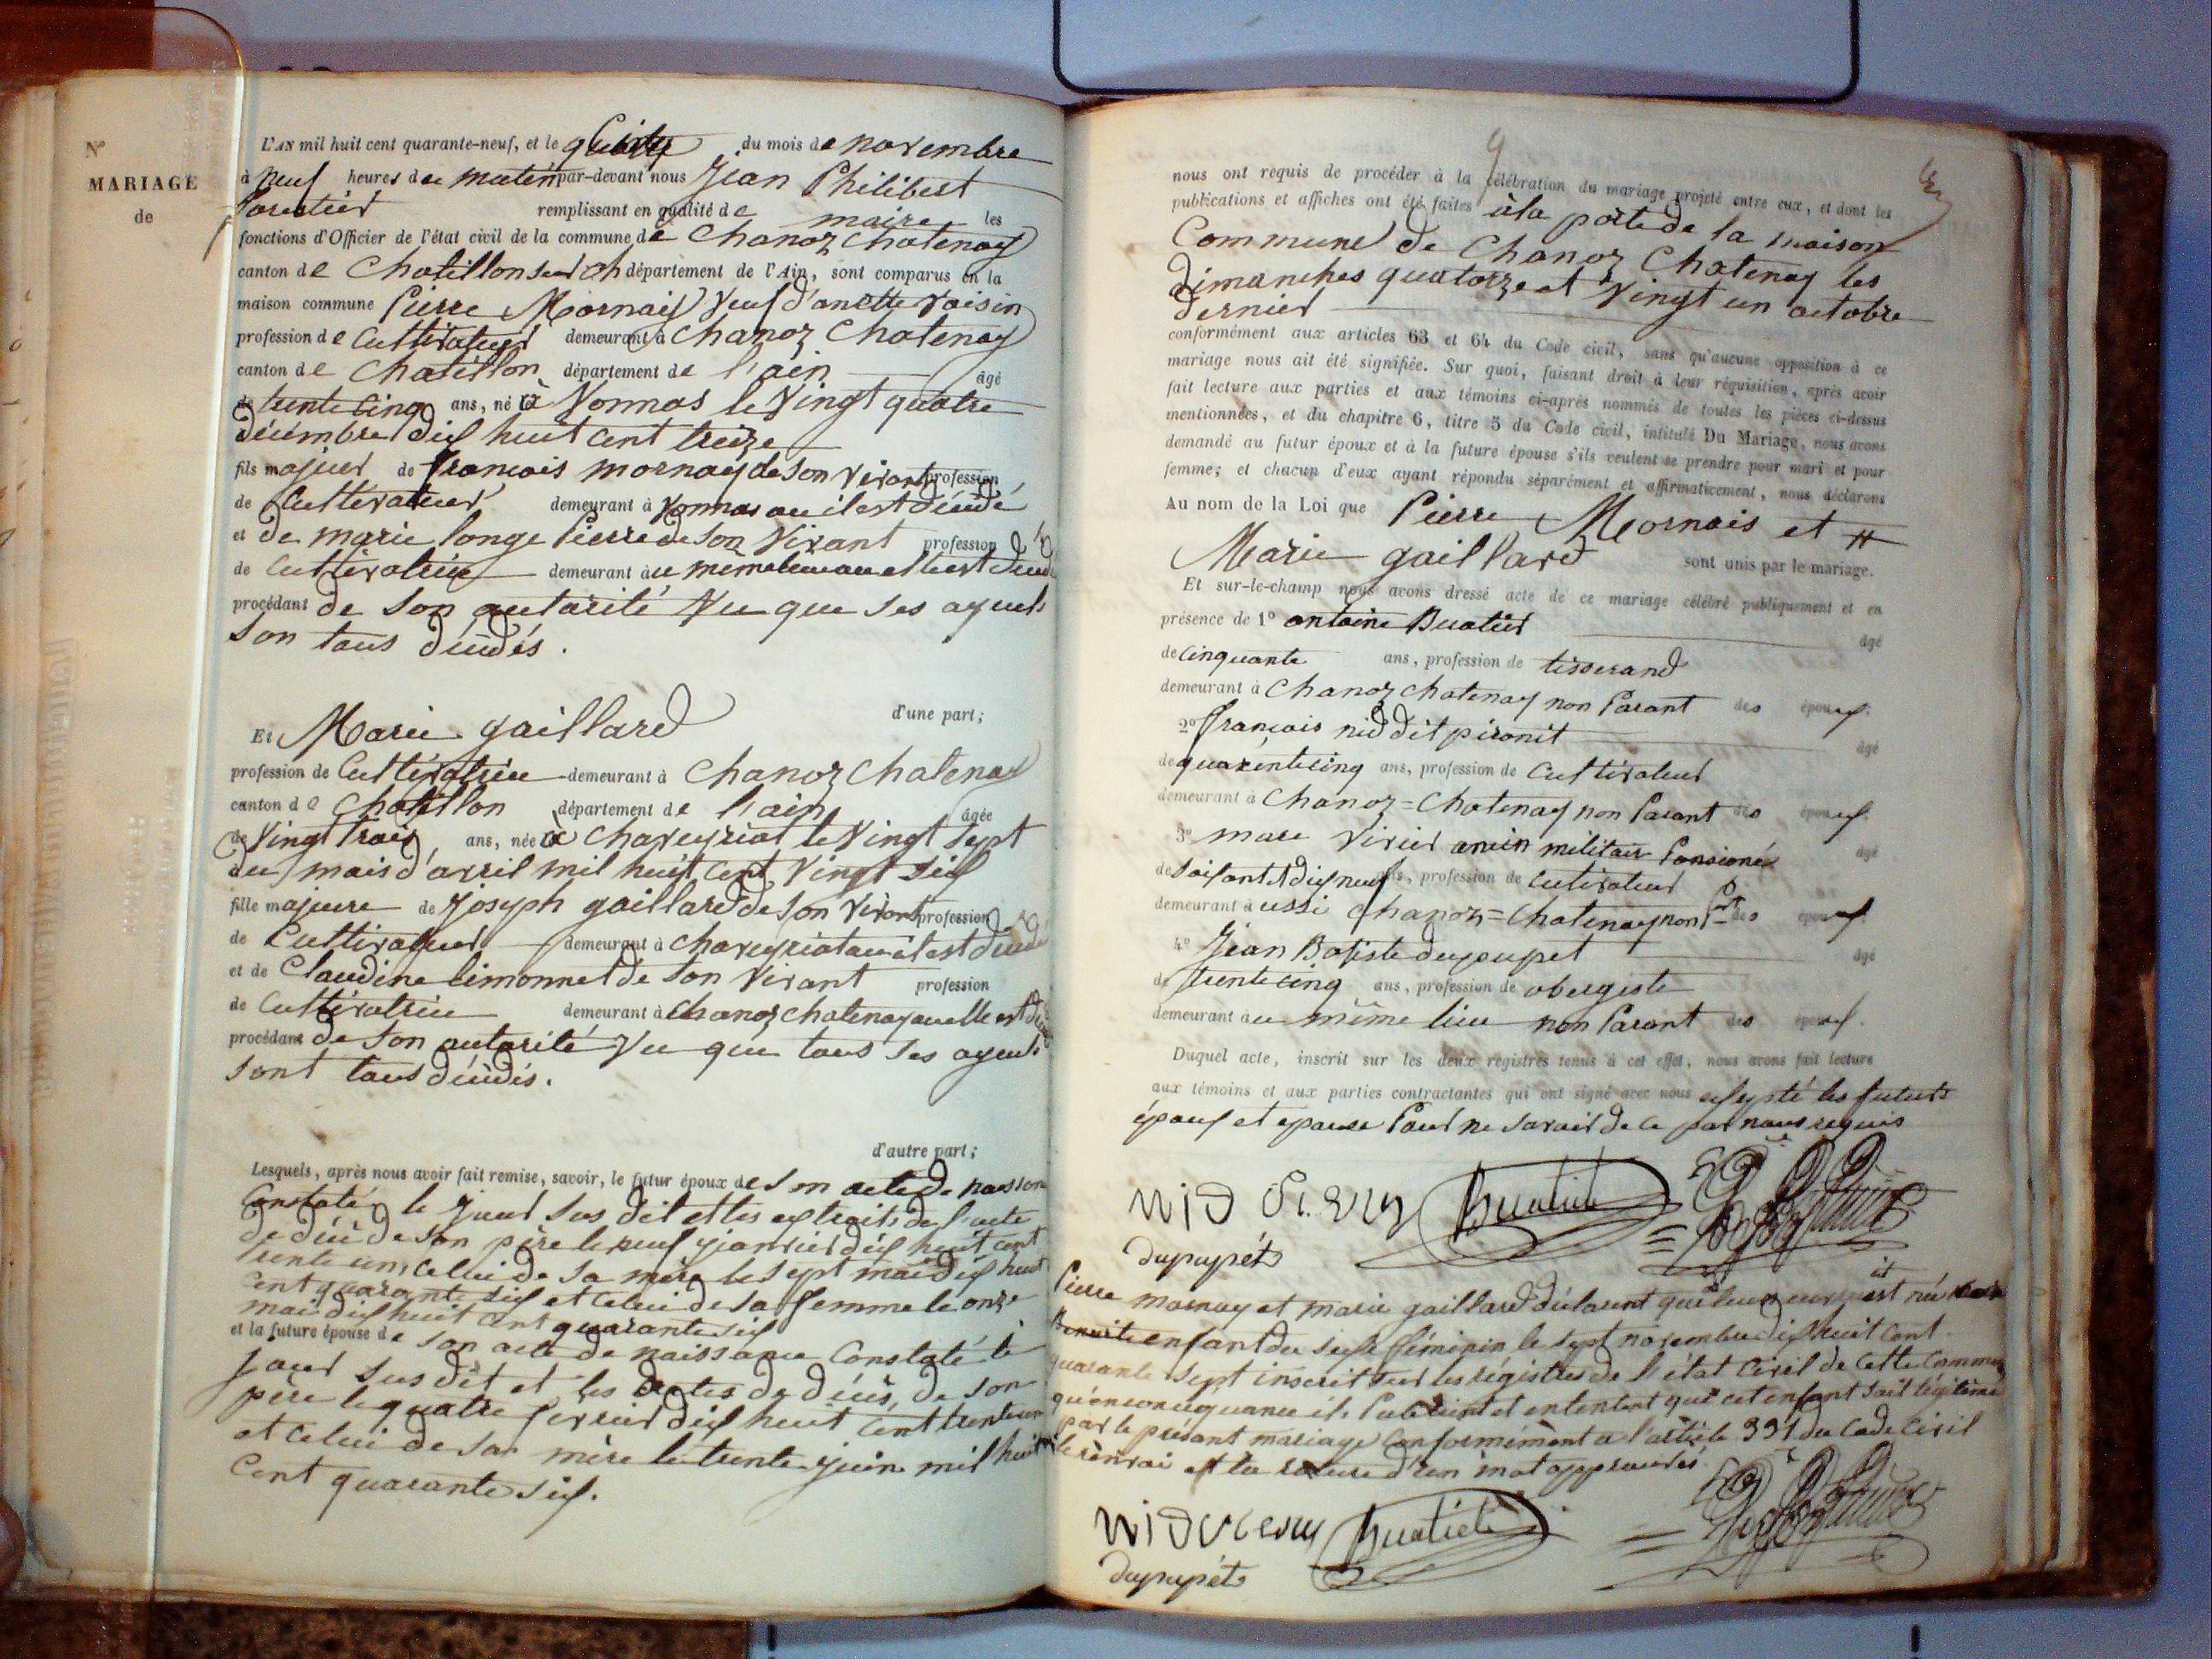 N°
MARIAGE
de
L'AN mil huit cent quarante-neuf, et le du mois de novembre
à neuf heures du matin par-devant nous Jean Philibert
forestier remplissant en qualité de maire les
fonctions d'Officier de l'état civil de la commune de Chanoz Chatenay
canton de Chatillon sur Ch département de l'Ain, sont comparus en la
maison commune Pierre Mornay veuf d'anette Voisin
profession de Cultivateur demeurant à Chanoz Chatenay
canton de Chatillon département de l'ain âgé
de trente cinq ans, né à Vonnas le vingt quatre
décembre dix huit cent treize
fils majeur de françois mornay de son vivant profession
de Cultivateur demeurant à Vonnas ou il est décédé
et de marie longe Pierre de son vivant profession
de Cultivatrice demeurant au même lieu ou elle est décédé
procédant de son autorité vu que ses ayeuls
son tous décédés.
d'une part;
Et Marie gaillard
profession de Cultivatrice demeurant à Chanoz Chatenay
canton de Chatillon département de l'ain âgée
de vingt trois ans, née à Chaveyriat le vingt sept
du mois d'avril mil huit cent vingt six
fille majeure de Joseph gaillard de son vivant profession
de Cultivateur demeurant à Chaveyriat ou il est décédé
et de Claudine limonnet de son vivant profession
de Cultivatrice demeurant à Chanoz Chatenay ou elle est
procédant de son autorité vu que tous ses ayeuls
sont tous décédés.
d'autre part;
Lesquels, après nous avoir fait remise, savoir, le futur époux de son acte de
Constaté le jour sus dit et les extraits de l'acte
de décè de son père le neuf janvier dix huit cent
trente un, celui de sa mère le sept mai dix huit
cent quarante six et celui de sa femme le onze
mai dix huit cent quarante six
et la future épouse de son acte de naissance Constaté le
jour sus dit et les actes de décès, de son
père le quatre fevrier dix huit cent trente un
et celui de sa mère le trente juin mil huit
cent quarante six.
nous ont requis de procéder à la célébration du mariage projeté entre eux, et dont les
publications et affiches ont été faites à la porte de la maison
Commune de Chanoz Chatenay les
Dimanches quatorze et vingt un octobre
dernier
conformément aux articles 63 et 64 du Code civil, sans qu'aucune opposition à ce
mariage nous ait été signifiée. Sur quoi, faisant droit à leur réquisition, après avoir
fait lecture aux parties et aux témoins ci-après nommés de toutes les pièces ci-dessus
mentionnées, et du chapitre 6, titre 5 du Code civil, intitulé Du Mariage, nous avons
demandé au futur époux et à la future épouse s'ils veulent se prendre pour mari et pour
femme; et chacun d'eux ayant répondu séparément et affirmativement, nous déclarons
Au nom de la Loi que Pierre Mornais et
Marie gaillard sont unis par le mariage.
Et sur-le-champ nous avons dressé acte de ce mariage célébré publiquement et en
présence de 1° antoine Buatier âgé
de cinquante ans, profession de tisserand
demeurant à Chanoz chatenay non Parant des époux.
2° françois nid dit pironit âgé
de quarente cinq ans, profession de Cultivateur
demeurant à Chanoz=Chatenay non Parant des époux.
3° marc Virier ancien militaire Pansioné âgé
de soisante dix neuf ans, profession de Cultivateur
demeurant aussi Chanoz=Chatenay non Pt des époux
4° Jean Batiste dupupet âgé
de trente cinq ans, profession de obergiste
demeurant au même lieu non Parant des époux.
Duquel acte, inscrit sur les deux registres tenus à cet effet, nous avons fait lecture
aux témoins et aux parties contractantes qui ont signé avec nous exsepté les futurs
époux et epouse Pour ne savoir de ce par nous requis
NiD Buatier
dupupét
Pierre mornay et marie gaillard déclarent est né
enfant du sexe féminin le sept novembre dix huit cent
quarante sept inscrit sur les régistres de l'état Civil de cette Commune
qu'en conséquance ils et entendent que cet enfant soit légitimé
par le présant mariage Conformément a l'article 331 du Code Civil
le renvoi et la rature d'un mot approuvés.
NiD Buatier
dupupét